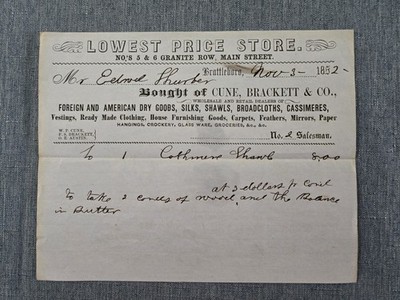 LOWEST PRICE STORE.
NO.'S 5 & 6 GRANITE ROW, MAIN STREET.
Brattleboro, Nov 3 - 1852 -
Mr Edwd Thurber
Bought of CUNE, BRACKETT & CO.,
WHOLESALE AND RETAIL DEALERS IN
FOREIGN AND AMERICAN DRY GOODS, SILKS, SHAWLS, BROADCLOTHS, CASSIMERES,
Vestings, Ready Made Clothing, House Furnishing Goods, Carpets, Feathers, Mirrors, Paper
HANGINGS, CROCKERY, GLASS WARE, GROCERIES, &c., &c.
W. P. CUNE,
F. A. BRACKETT,
No. 2 Salesman.
To 1 Cashmere Shawl 8,00
at 3 dollars pr Cord
To take 2 cords of wood and the Balance
in Butter